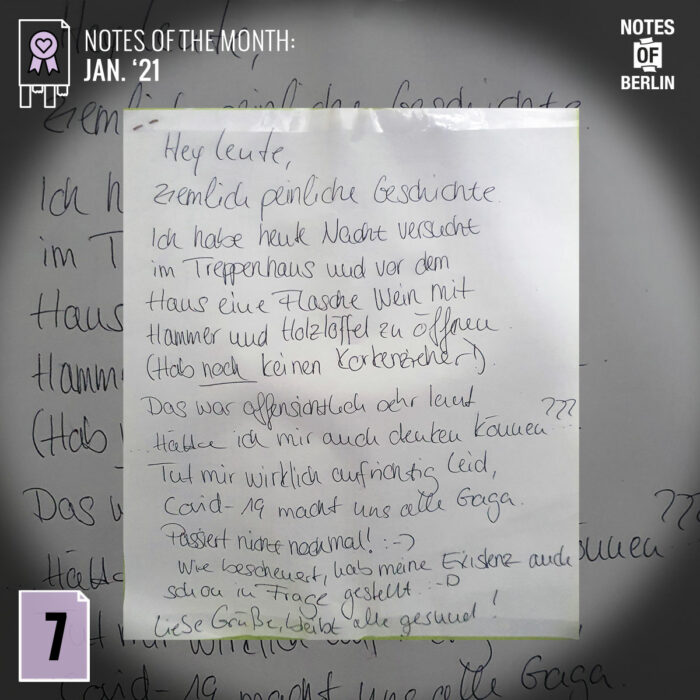 NOTES OF THE MONTH:
JAN. ‘21
NOTES
OF
BERLIN
Hey Leute,
ziemlich peinliche Geschichte.
Ich habe heute Nacht versucht
im Treppenhaus und vor dem
Haus eine Flasche Wein mit
Hammer und Holzlöffel zu öffnen.
(Hab noch keinen Korkenzieher!).
Das war offensichtlich sehr laut
... Hätte ich mir auch denken können ???
Tut mir wirklich aufrichtig Leid,
Covid-19 macht uns alle Gaga.
Passiert nicht nochmal! :-)
Wie bescheuert, hab meine Existenz auch
schon in Frage gestellt. :-D
Liebe Grüße, bleibt alle gesund!
7